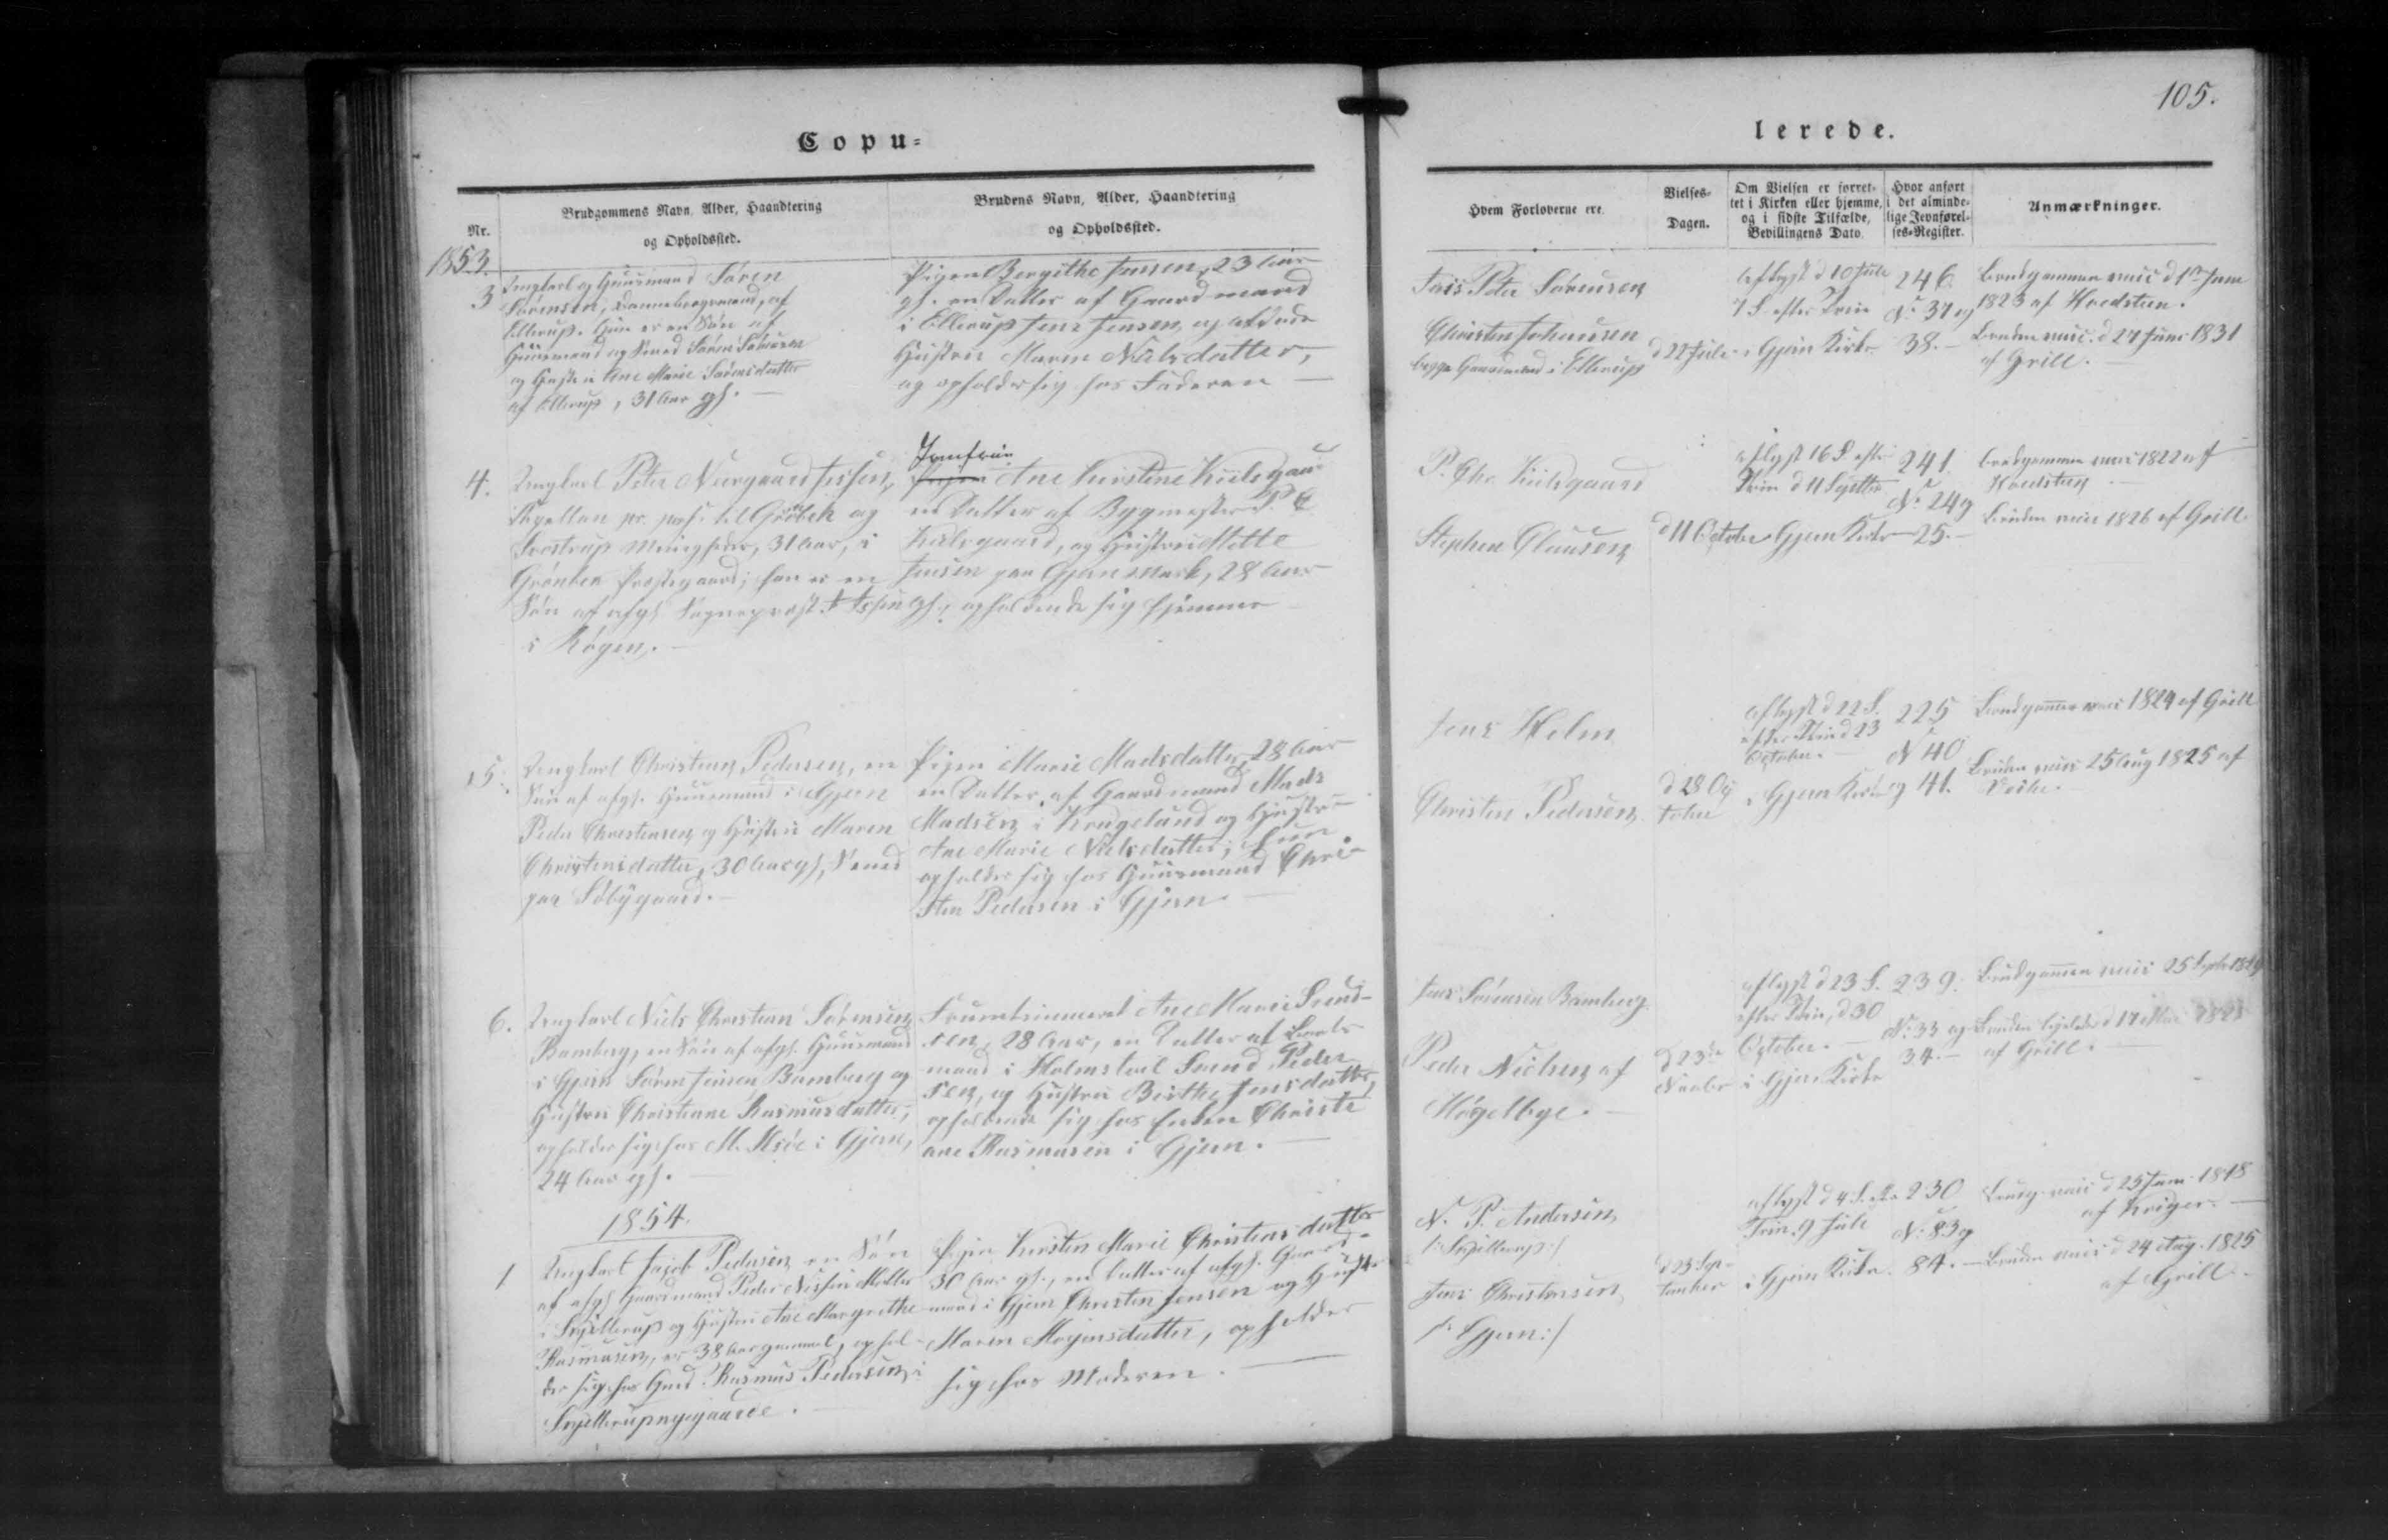 105.
Copu=
lerede.
Nr.
Brudgommens Navn, Alder, Haandtering
og Opholdssted.
Brudens Navn, Alder, Haandtering
og Opholdssted.
Hvem Forloverne ere.
Vielses-
Dagen.
Om Vielsen er forret-
tet i Kirken eller hjemme,
og i sidste Tilfælde,
Bevillingens Dato.
Hvor anført
i det alminde-
lige Jevnførel-
ses-Register.
Anmærkninger.
1853.
3
Ungkarl og Huusmand Søren
Sørensen, Dannebrogsmand, af
Ellerup. Han er en Søn af
Huusmand og Smed Søren Sørensen
og Hustru Ane Marie Sørensdatter
af Ellerup, 31 Aar gl.
Pigen Bergithe Jensen, 23 Aar
gl. en Datter af Gaardmand
i Ellerup Jens Jensen og afdøde
Hustru Maren Nielsdatter,
og opholder sig hos Faderen
Peter Sørensen
Christen Johansen
begge Gaardmænd i Ellerup
d 22 Juli
aflyst d 10 Juli
7 S. efter Trin
i Gjern Kirke
246
No 37 og
38.
Brudgommen vacc. d 1 Juni
1823 af Hvedsteen.
Bruden vacc. d 27 Juni 1831
af Grill.
4.
Ungkarl Peter Neergaard
Capellan pr. pers. til Grönbek og
Svostrup Menigheder, 31 Aar, i
Grönbek Præstegaard; han er en
Søn af afg. Sognepræst
i Kögen.
Jomfrue
Ane Kirstine Kielsgaard
en Datter af Bygmester P. C
Kielsgaard, og Hustru Mette
Jensen paa Gjern Mark, 28 Aar
gl., opholdende sig hjemme
P. Chr. Kielsgaard
Stephen Clausen
d 11 October
aflyst 16 S. efter
Trin d 11 Septbr
Gjern Kirke
241
No 24 og
25.
Brudgommen vacc. 1822 af
Hvedsteen
Bruden vacc. 1826 af Grill.
5.
Ungkarl Christian Pedersen, en
Søn af afg. Huusmand i Gjern
Peder Christensen og Hustru Maren
Christensdatter, 30 Aar gl, Smed
paa Søbygaard.
Pigen Marie Madsdatter, 28 Aar
en Datter af Gaardmand Mads
Madsen i Kragelund og Hustru
Ane Marie Nielsdatter; hun
opholder sig hos Huusmand Chri-
sten Pedersen i Gjern.
Jens Helm
Christen Pedersen
d 28 Oc
tober
aflyst d 22 S.
efter Trin d 23
October.
i Gjern Kirke
225
No 40
og 41.
Brudgommen vacc. 1824 af Grill
Bruden vacc. 25 Aug 1825 af
6.
Ungkarl Niels Christian Sørensen
Bamberg, en Søn af afg. Huusmand
i Gjern Søren Jensen Bamberg og
Hustru Christiane Rasmusdatter;
opholder sig hos M. Ksøe i Gjern,
24 Aar gl.
Fruentimmeret Ane Marie Svend-
sen, 28 Aar, en Datter af
mand i Holmstoel Svend Peder
sen, og Hustru Birthe Jensdatter,
opholdende sig hos Enken Christi
ane Rasmusen i Gjern.
Jens Sørensen Bamberg
Peder Nielsen af
Høgelbye.
d 23de
Novbr
aflyst d 23 S.
efter Trin, d 30
October.
i Gjern Kirke
239.
No 33 og
34.
Brudgommen vacc. 25 Septbr 1829
Bruden d 17 Mai
af Grill.
1854.
1
Ungkarl Jacob Pedersen en Søn
af afg. Gaardmand Peder Møller
i Skjellerup og Hustru Ane Margrethe
Rasmusen, er 38 Aar gammel, ophol-
der sig hos Gmd. Rasmus Pedersen i
Skjellerupnygaarde.
Pigen Kirsten Marie Christensdatter
30 Aar gl., en Datter af afg. Gaard-
mand i Gjern Christen Jensen og Hustru
Maren Mogensdatter, opholder
sig hos Moderen.
N. P. Andersen
/: Skjellerup :/
Jens Christensen
/: Gjern :/
d 23 Sep-
tember
aflyst d 4 S. efter
Trin. 9 Juli
i Gjern Kirke.
230
No 83 og
84.
Brudg. vacc. d 25 Juni 1818
af Krüger.
Bruden vacc. d 24 Aug. 1825
af Grill.